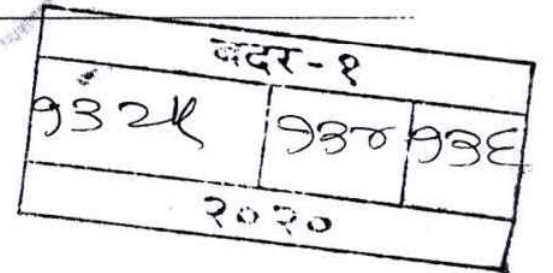 बदर-१
१३२५ १३४ १३६
२०२०